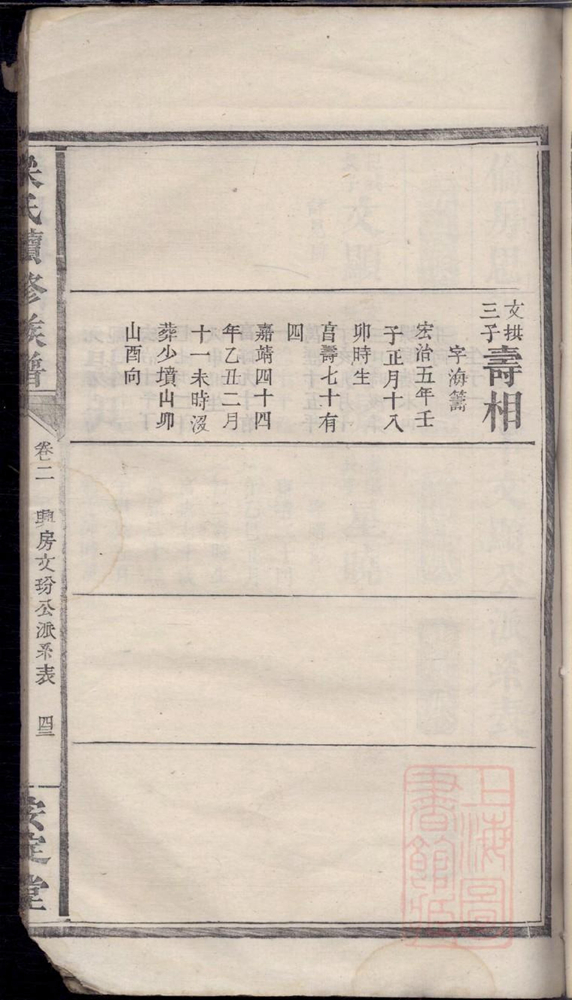 文拱
三子
壽相
字海籌
宏治五年壬
子正月十八
卯時生
享壽七十有
四
嘉靖四十四
年乙丑二月
十一未時沒
葬少墳山卯
山酉向
氏續修族譜
卷二
興房文玢公派系表
四三
安定堂
上海圖
書館